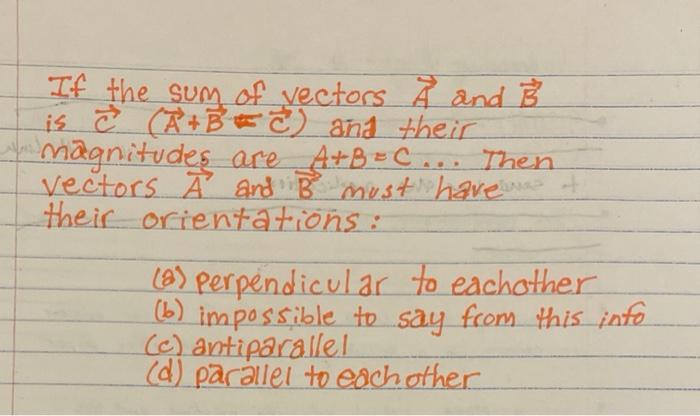 If the sum of vectors A⃗ and B⃗
is C⃗ (A⃗+B⃗ = C⃗) and their
magnitudes are A+B=C... Then
vectors A⃗ and B⃗ must have
their orientations:
(a) perpendicular to eachother
(b) impossible to say from this info
(c) antiparallel
(d) parallel to eachother